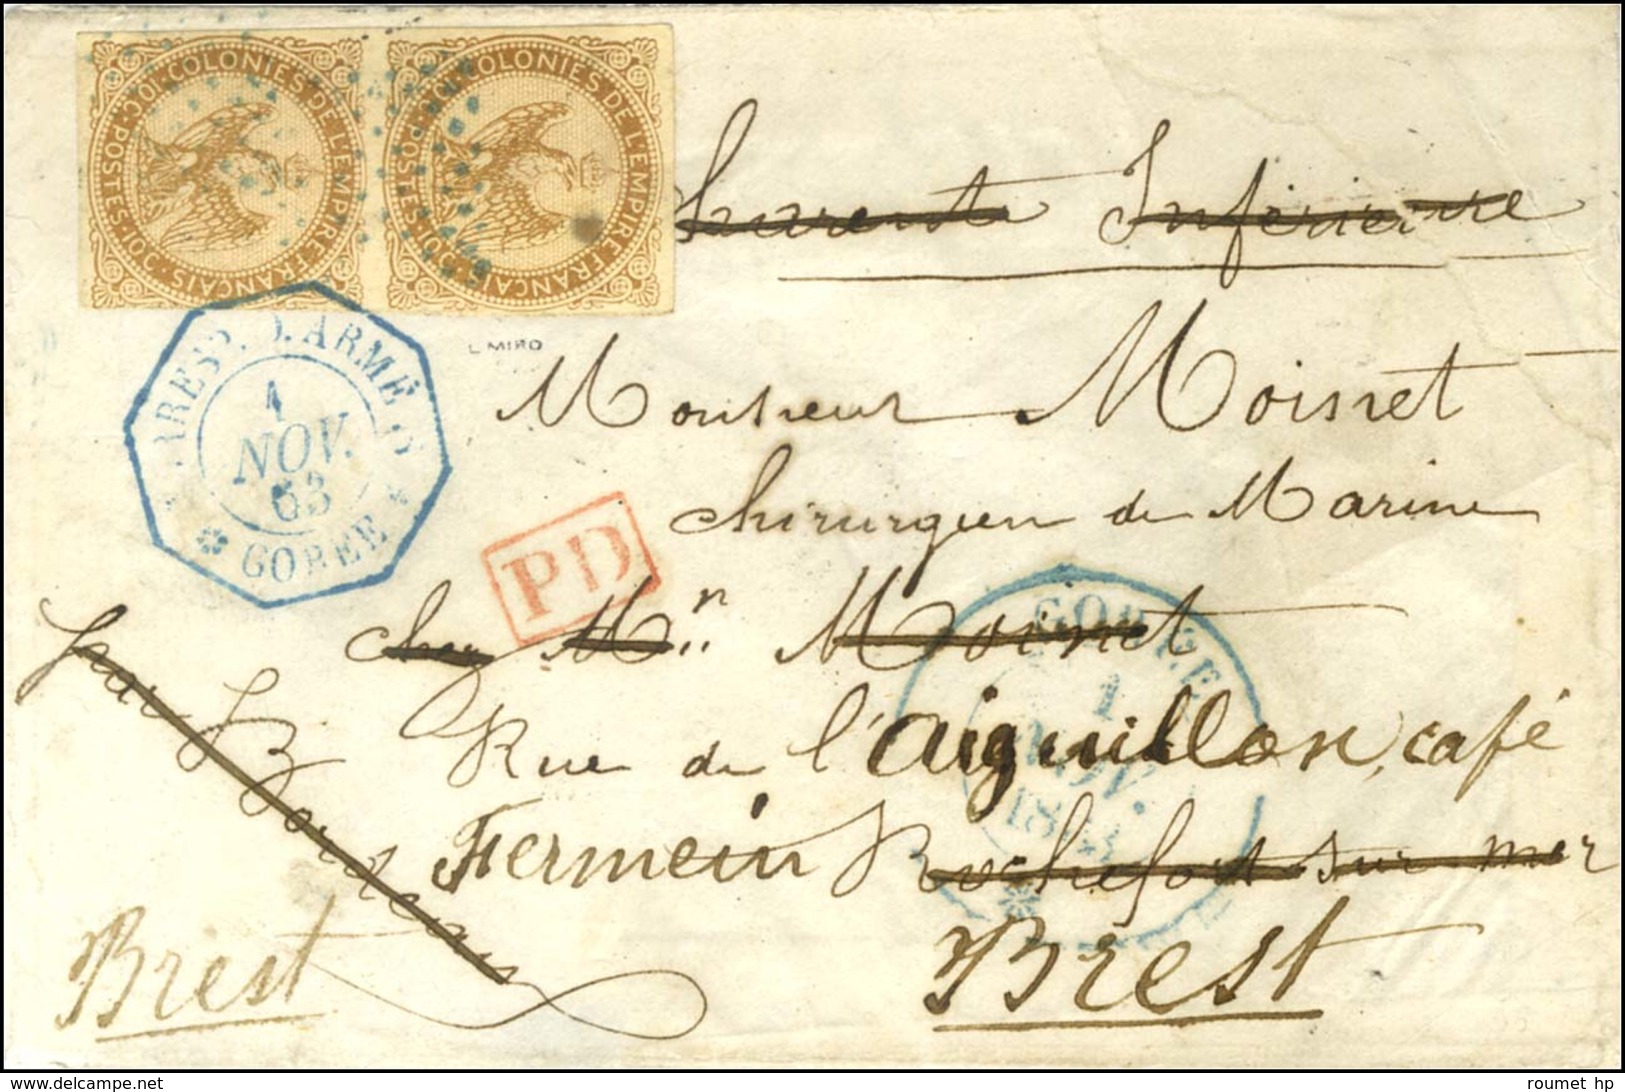 COLONIES DE L'EMPIRE FRANÇAIS · POSTES · 10C · 10C
COLONIES DE L'EMPIRE FRANÇAIS · POSTES · 10C · 10C
Charente Inférieure
L MIRO
CORRESP. D. ARMÉES
1
NOV.
63
GOREE
Monsieur Moisnet
Chirurgien de Marine
PD
chez Mr. Moisnet
GOREE
1
NOV.
1863
Rue de l'Aiguillon, café
Fermein Rochefort sur mer
par Bordeaux
Brest
Brest
roumet hp